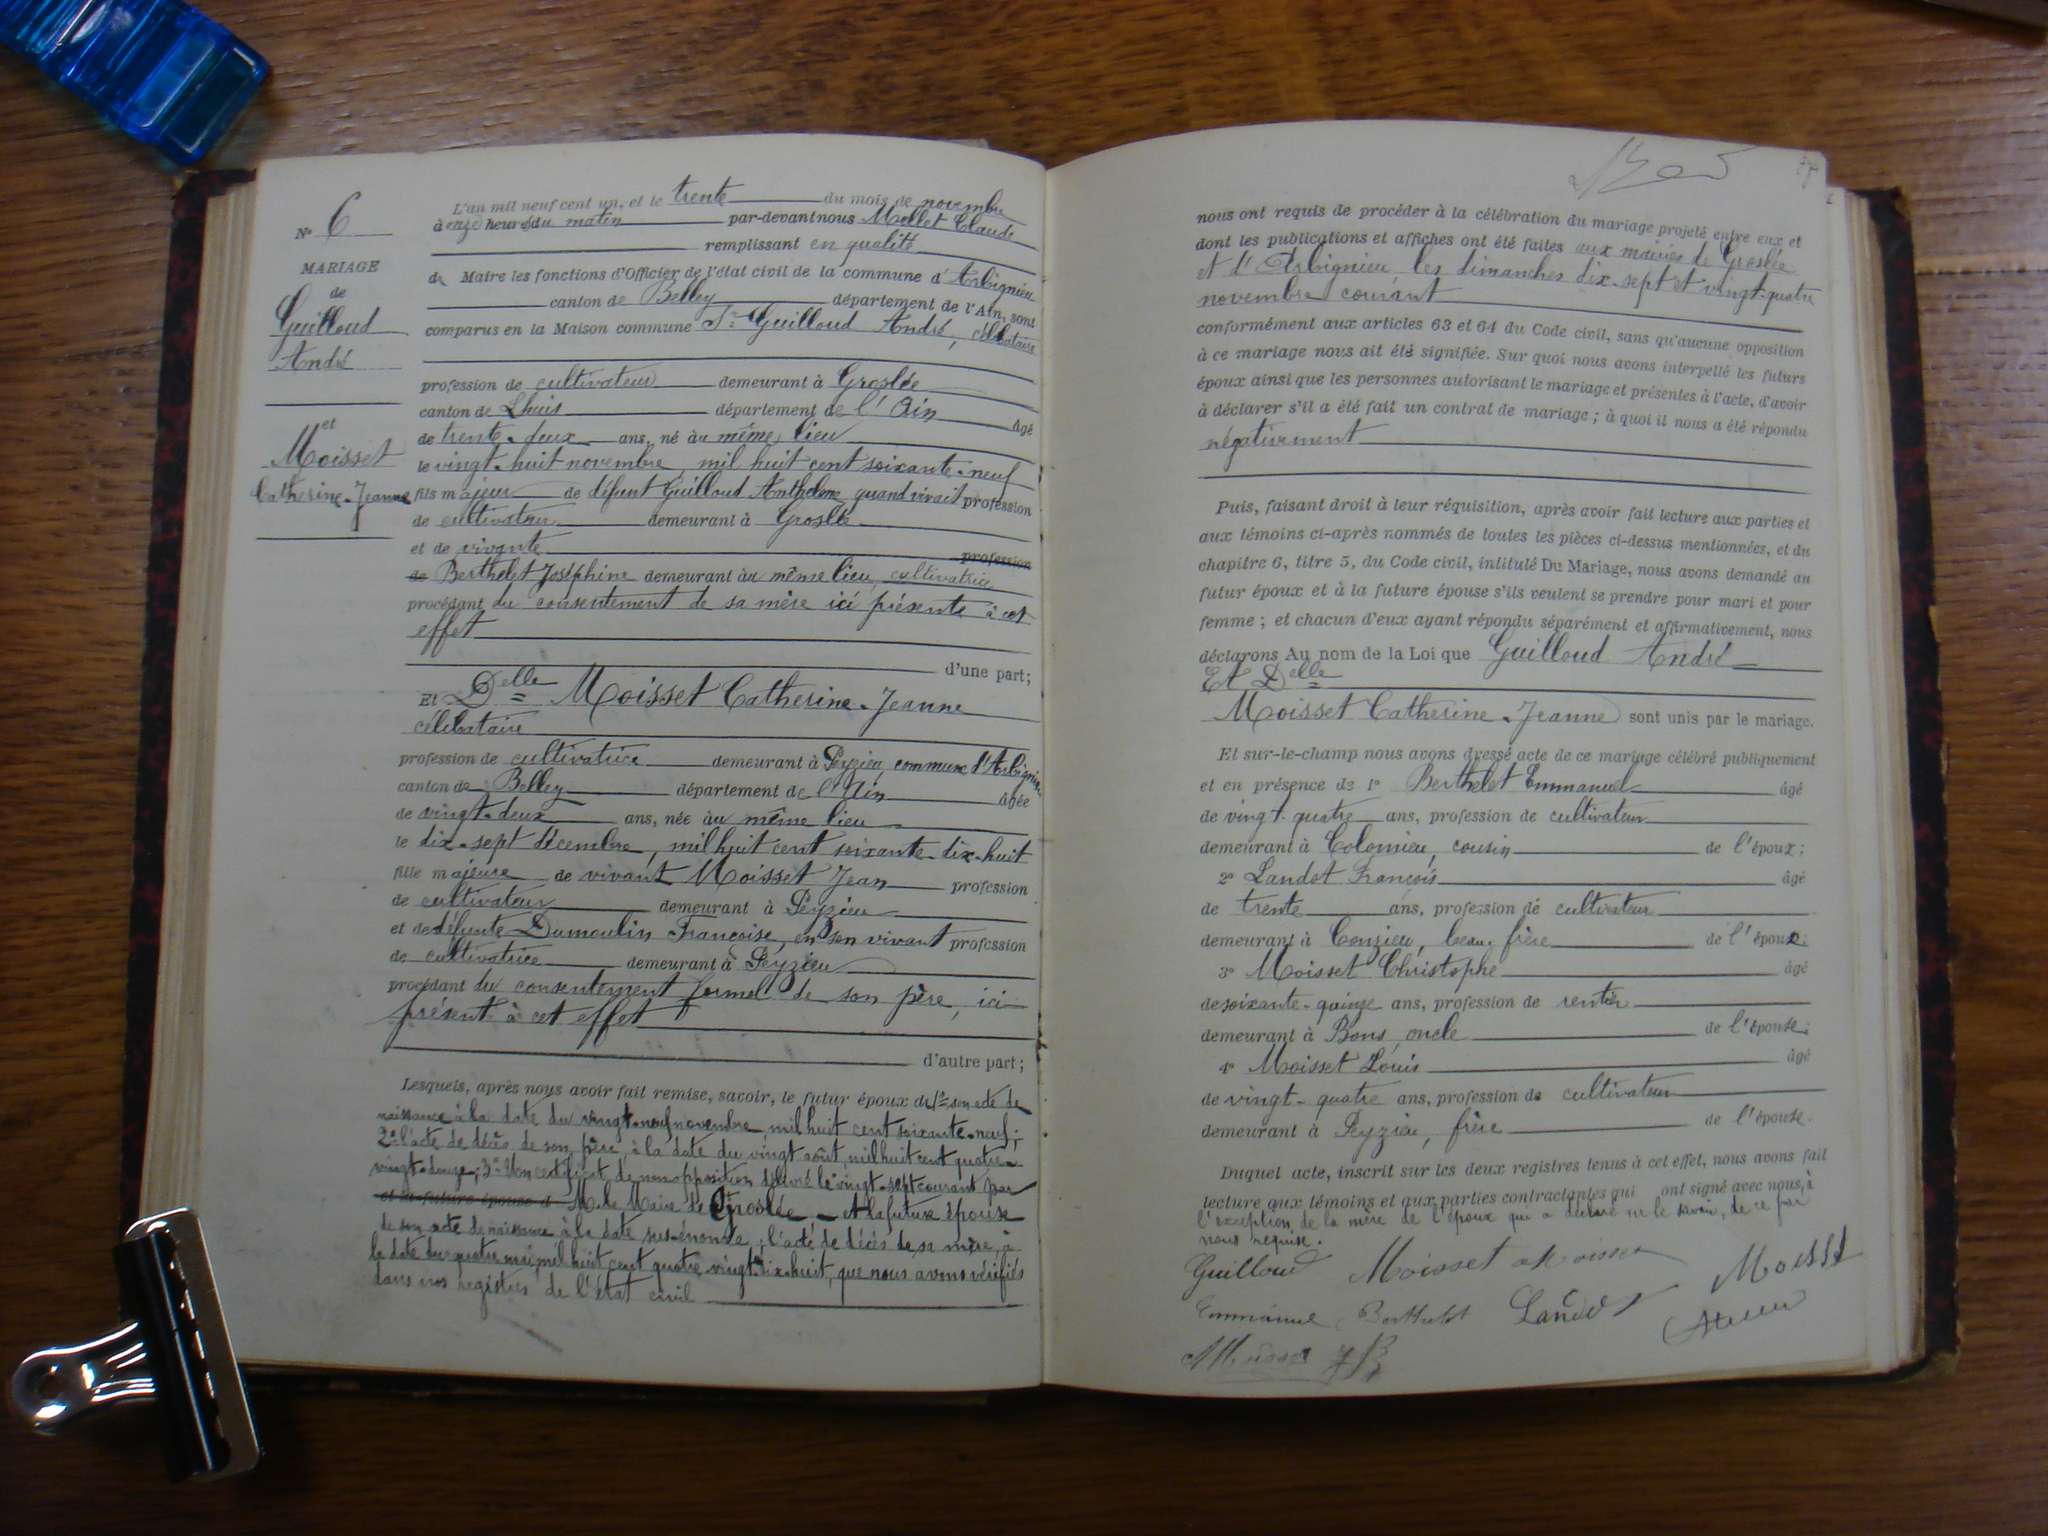 Nº 6
MARIAGE
de
Guilloud
André
et
Moisset
Catherine-Jeanne
L'an mil neuf cent un, et le trente du mois de novembre
à onze heures du matin par-devant nous Mollet Claude
remplissant en qualité
de Maire les fonctions d'Officier de l'état civil de la commune d'Arbignieu
canton de Belley département de l'Ain, sont
comparus en la Maison commune Sr Guilloud André, célibataire
profession de cultivateur demeurant à Groslée
canton de Lhuis département de l'Ain âgé
de trente-deux ans, né au même lieu
le vingt-huit novembre, mil huit cent soixante-neuf
fils majeur de défunt Guilloud Anthelme quand vivait profession
de cultivateur demeurant à Groslée
et de vivante profession
de Berthelet Joséphine demeurant au même lieu, cultivatrice
procédant du consentement de sa mère ici présente à cet
effet
d'une part;
Et Delle Moisset Catherine-Jeanne
célibataire
profession de cultivatrice demeurant à Peyzieu, commune d'Arbignieu
canton de Belley département de l'Ain âgée
de vingt-deux ans, née au même lieu
le dix-sept décembre, mil huit cent soixante-dix-huit
fille majeure de vivant Moisset Jean profession
de cultivateur demeurant à Peyzieu
et de défunte Dumoulin Françoise, en son vivant profession
de cultivatrice demeurant à Peyzieu
procédant du consentement formel de son père, ici
présent à cet effet
d'autre part;
Lesquels, après nous avoir fait remise, savoir, le futur époux de 1º son acte de
naissance à la date du vingt-neuf novembre mil huit cent soixante-neuf;
2º l'acte de décès de son père, à la date du vingt août, mil huit cent quatre-
vingt-douze; 3º Un certificat de non opposition délivré le vingt-sept courant par
et la future épouse d M. le Maire de Groslée - et la future épouse
de son acte de naissance à la date sus-énoncée; l'acte de décès de sa mère, à
la date du quatre mai, mil huit cent quatre-vingt-dix-huit, que nous avons vérifiés
dans nos registres de l'état civil
nous ont requis de procéder à la célébration du mariage projeté entre eux et
dont les publications et affiches ont été faites aux mairies de Groslée
et d'Arbignieu, les dimanches dix-sept et vingt-quatre
novembre courant
conformément aux articles 63 et 64 du Code civil, sans qu'aucune opposition
à ce mariage nous ait été signifiée. Sur quoi nous avons interpellé les futurs
époux ainsi que les personnes autorisant le mariage et présentes à l'acte, d'avoir
à déclarer s'il a été fait un contrat de mariage; à quoi il nous a été répondu
négativement
Puis, faisant droit à leur réquisition, après avoir fait lecture aux parties et
aux témoins ci-après nommés de toutes les pièces ci-dessus mentionnées, et du
chapitre 6, titre 5, du Code civil, intitulé Du Mariage, nous avons demandé au
futur époux et à la future épouse s'ils veulent se prendre pour mari et pour
femme; et chacun d'eux ayant répondu séparément et affirmativement, nous
déclarons Au nom de la Loi que Guilloud André
Et Delle
Moisset Catherine-Jeanne sont unis par le mariage.
Et sur-le-champ nous avons dressé acte de ce mariage célébré publiquement
et en présence de 1º Berthelet Emmanuel âgé
de vingt-quatre ans, profession de cultivateur
demeurant à Colomieu, cousin de l'époux;
2º Landot François âgé
de trente ans, profession de cultivateur
demeurant à Conzieu, beau-frère de l'époux;
3º Moisset Christophe âgé
de soixante-quinze ans, profession de rentier
demeurant à Bons, oncle de l'épouse;
4º Moisset Louis âgé
de vingt-quatre ans, profession de cultivateur
demeurant à Peyzieu, frère de l'épouse.
Duquel acte, inscrit sur les deux registres tenus à cet effet, nous avons fait
lecture aux témoins et aux parties contractantes qui ont signé avec nous, à
l'exception de la mère de l'époux qui a déclaré ne le savoir, de ce par
nous requise.
Guilloud Moisset Moisset Moisset
Emmanuel Berthelet Landot